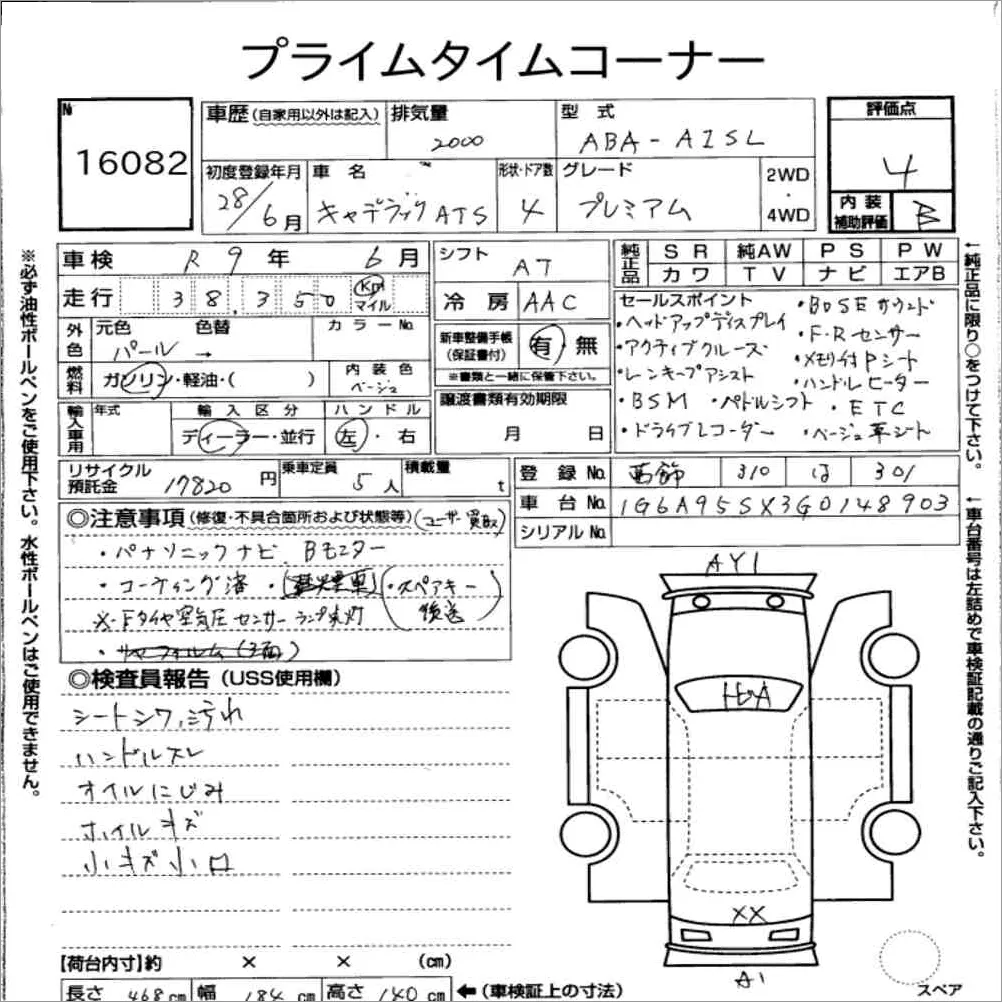 プライムタイムコーナー
№ 16082
車歴(自家用以外は記入)
排気量 2000
型式 ABA-A1SL
評価点 4
内装補助評価 B
初度登録年月 28/6月
車名 キャデラックATS
形状・ドア数 4
グレード プレミアム
2WD・4WD
車検 R9年 6月
シフト AT
純正品 SR 純AW PS PW
カワ TV ナビ エアB
走行 38,350 Km マイル
冷房 AAC
外色 元色 色替 カラーNo.
パール →
新車整備手帳(保証書付) 有・無
※書類と一緒に保管下さい。
燃料 ガソリン・軽油・( )
内装色 ベージュ
譲渡書類有効期限
月 日
輸入車用 年式 輸入区分 ハンドル
ディーラー・並行 左・右
セールスポイント
・ヘッドアップディスプレイ
・アクティブクルーズ
・レーンキープアシスト
・BSM ・パドルシフト ・ETC
・ドライブレコーダー ・ベージュ革シート
・BOSEサウンド
・F・Rセンサー
・メモリ付Pシート
・ハンドルヒーター
リサイクル預託金 17820円
乗車定員 5人
積載量 t
登録No. 葛飾 310 は 301
車台No. 1G6A95SX3G0148903
シリアルNo.
◎注意事項(修復・不具合箇所および状態等)(ユーザー買取)
・パナソニックナビ Bモニター
・コーティング済 ・(禁煙車) ・(スペアキー後送)
※Fタイヤ空気圧センサーランプ点灯
◎検査員報告(USS使用欄)
シートシワ,汚れ
ハンドルスレ
オイルにじみ
ホイルキズ
小キズ小凹
【荷台内寸】約 × × (cm)
長さ 468cm 幅 184cm 高さ 140cm ←(車検証上の寸法)
AY1
XX
A1
スペア
※必ず油性ボールペンをご使用下さい。水性ボールペンはご使用できません。
←純正品に限り○をつけて下さい。
←車台番号は左詰めで車検証記載の通りご記入下さい。